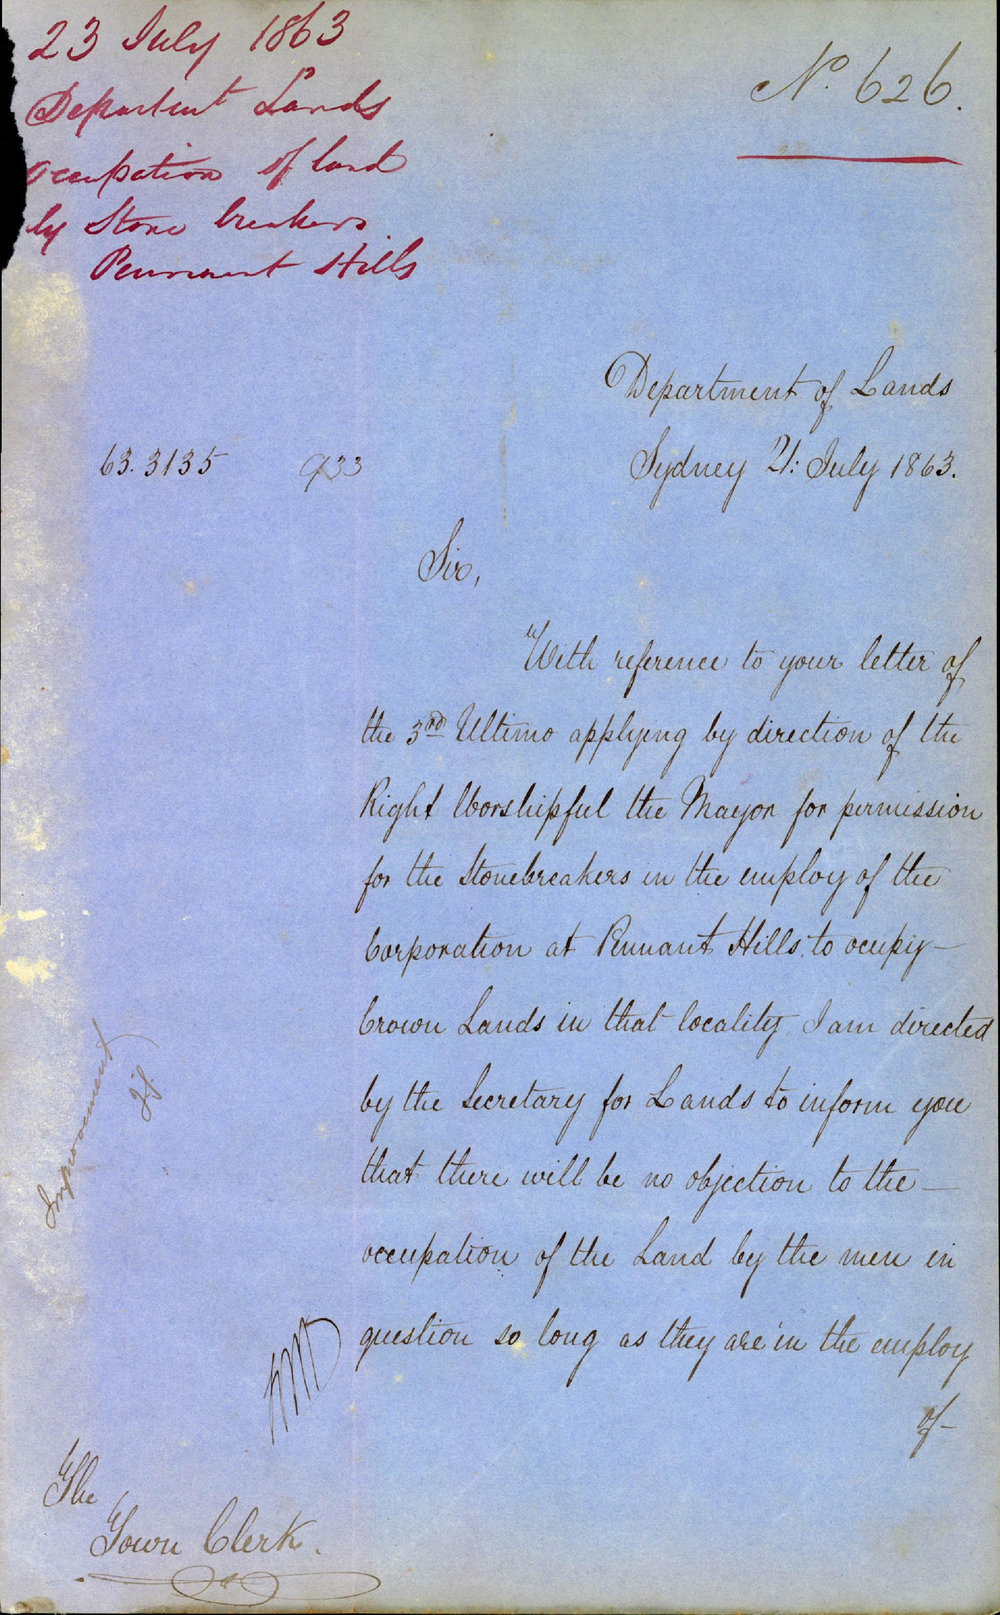 23 July 1863
Department Lands
occupation of land
by Stone breakers
Pennant Hills
No. 626.
Department of Lands
63.3135 933 Sydney 21: July 1863.
Sir,
With reference to your letter of
the 3rd Ultimo applying by direction of the
Right Worshipful the Mayor for permission
for the Stonebreakers in the employ of the
Corporation at Pennant Hills, to ocupiy—
Crown Lands in that locality, I am directed
by the Secretary for Lands to inform you
that there will be no objection to the—
occupation of the Land by the men in
question so long as they are in the employ
of—
Improvement
The
Town Clerk.